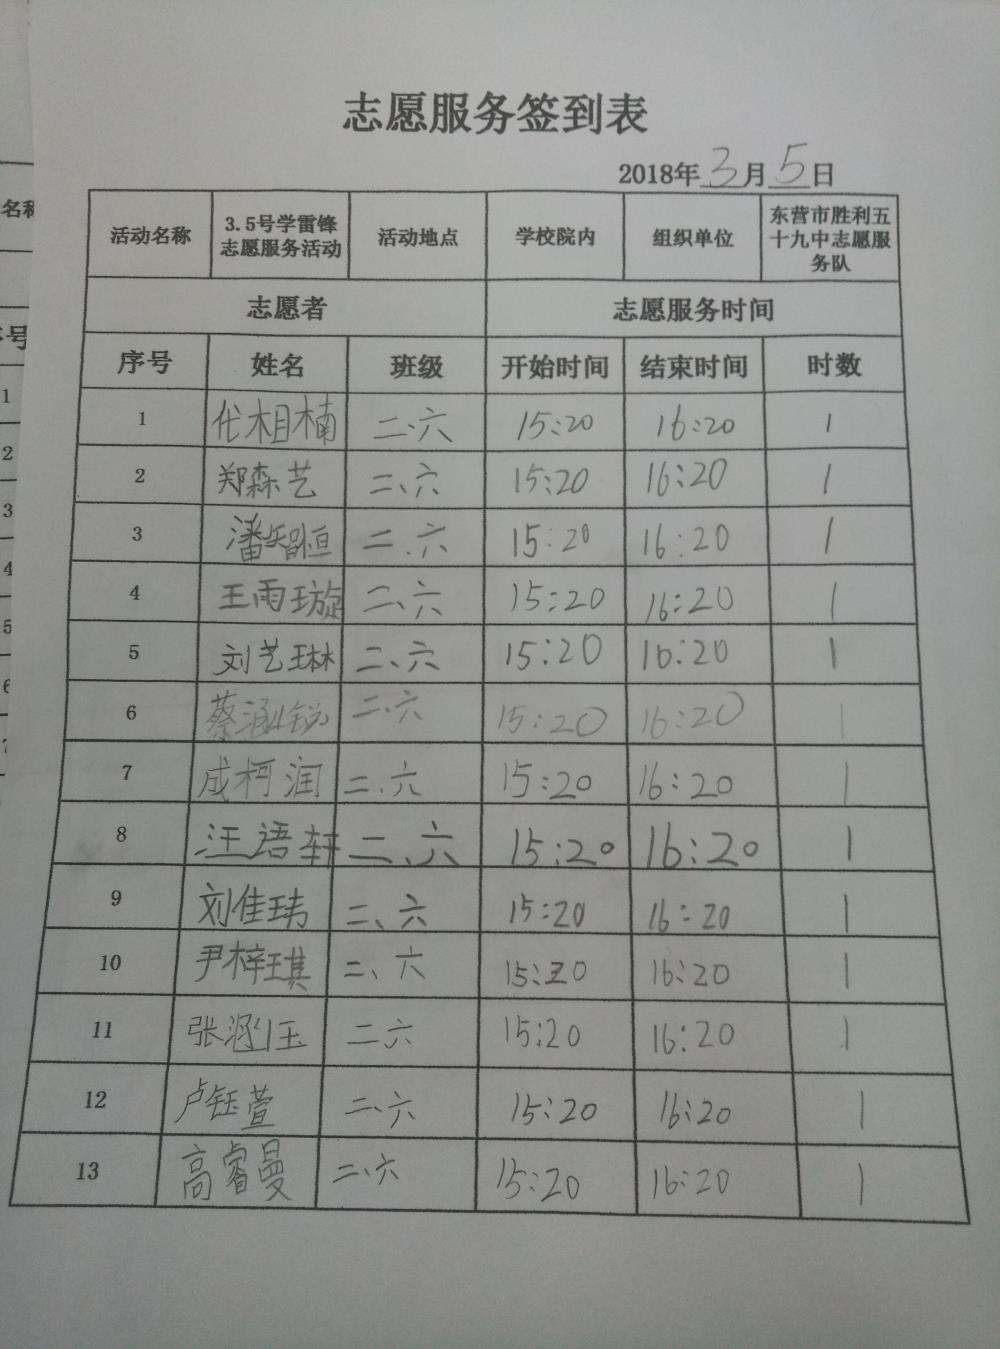 志愿服务签到表
2018年3月5日
活动名称 3.5号学雷锋志愿服务活动 活动地点 学校院内 组织单位 东营市胜利五十九中志愿服务队
志愿者 志愿服务时间
序号 姓名 班级 开始时间 结束时间 时数
1 代相楠 二.六 15:20 16:20 1
2 郑森艺 二、六 15:20 16:20 1
3 潘智恒 二.六 15:20 16:20 1
4 王雨璇 二、六 15:20 16:20 1
5 刘艺琳 二、六 15:20 16:20 1
6 蔡涵锐 二、六 15:20 16:20 1
7 成柯润 二、六 15:20 16:20 1
8 汪语轩 二、六 15:20 16:20 1
9 刘佳玮 二、六 15:20 16:20 1
10 尹梓琪 二、六 15:20 16:20 1
11 张涵钰 二六 15:20 16:20 1
12 卢钰萱 二、六 15:20 16:20 1
13 高睿曼 二、六 15:20 16:20 1
名称
号
1
2
3
4
5
6
7